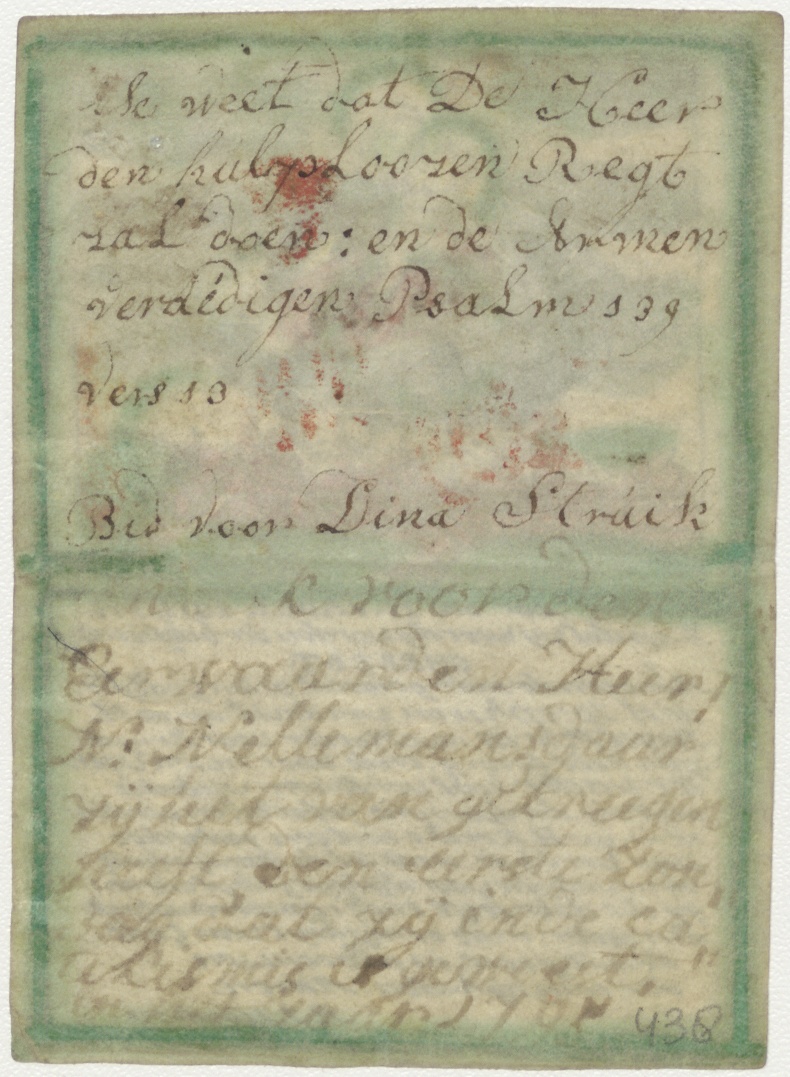 Ik weet dat De Heer
den hulploozen Regt
zal doen: en de Armen
verdédigen Psalm 139
vers 13
Bid voor Dina Strúik
k voor den
Eerwaarden Heer,
N: Nellemans daar
zij het van gekreegen
heeft den eerste zon„
dag dat zij in de ca„
is geweest, "
in het jaar
438